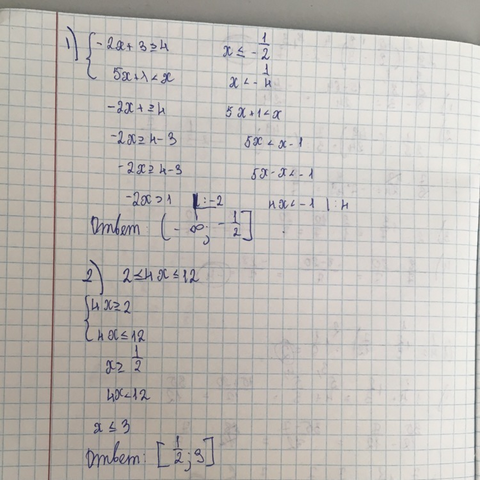 1) { -2x + 3 ≥ 4    x ≤ -1/2
5x+1 < x    x < -1/4
-2x + ≥ 4    5x+1 < x
-2x ≥ 4-3    5x < x-1
-2x ≥ 4-3    5x-x < -1
-2x ≥ 1 | :-2    4x < -1 | : 4
Ответ (-∞; -1/2]
2) 2 ≤ 4x ≤ 12
{ 4x ≥ 2
4x ≤ 12
x ≥ 1/2
4x < 12
x ≤ 3
Ответ: [1/2; 3]